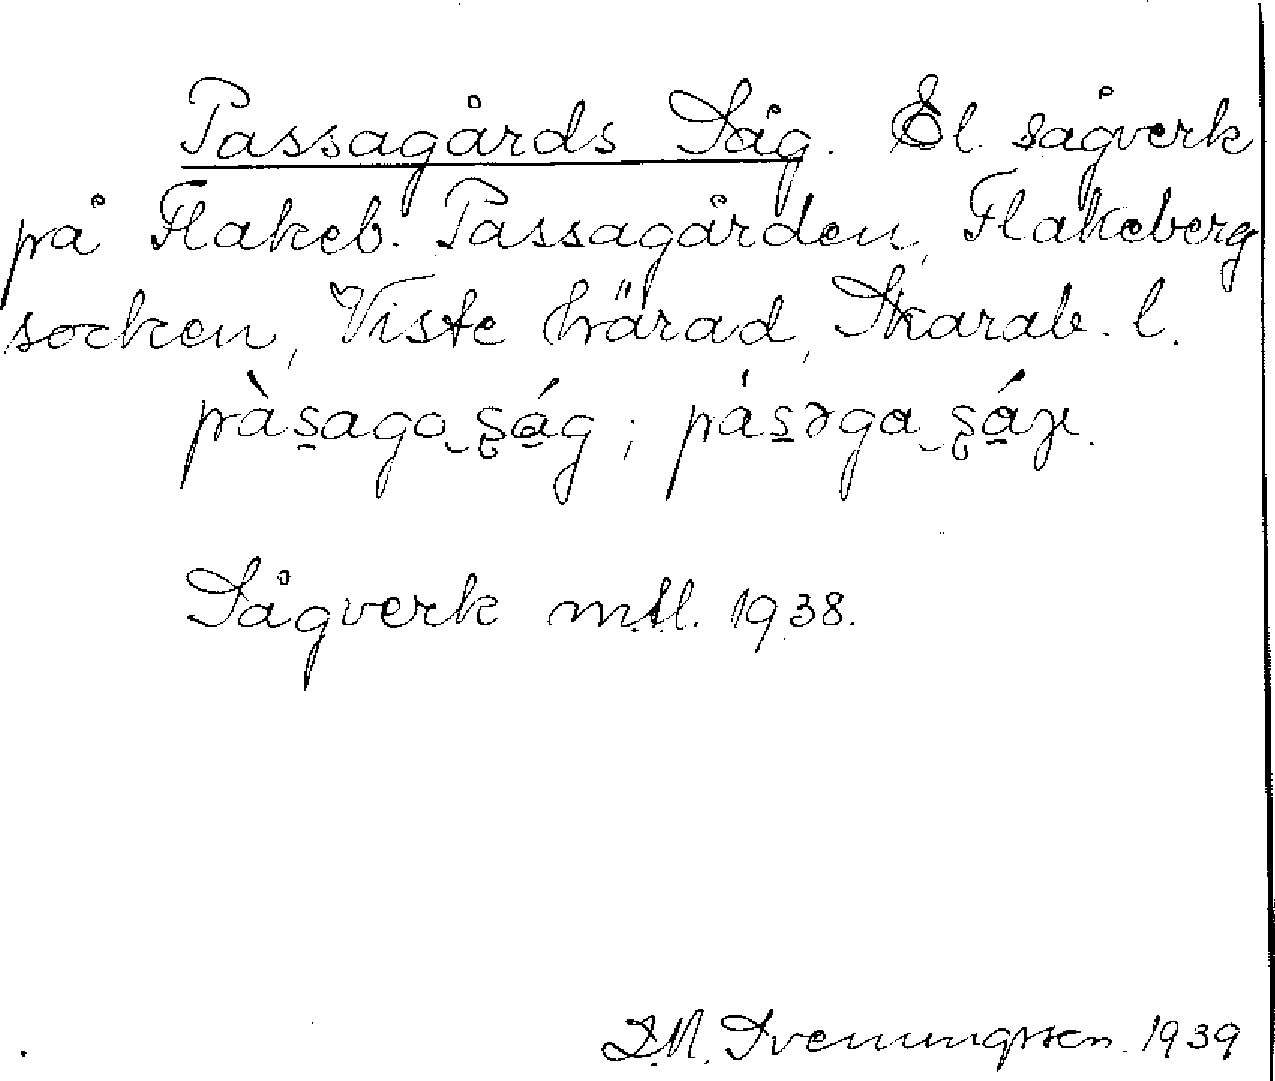 Passagårds Såg. El. sågverk
på Flakeb. Passagården, Flakeberg
socken, Viste härad, Skarab. l.
pàs̲ago ̮s̨á̲g; pás̲əga ̮s̨á̲
Sågverk mtl. 1938.
D.N. Svenungsson. 1939